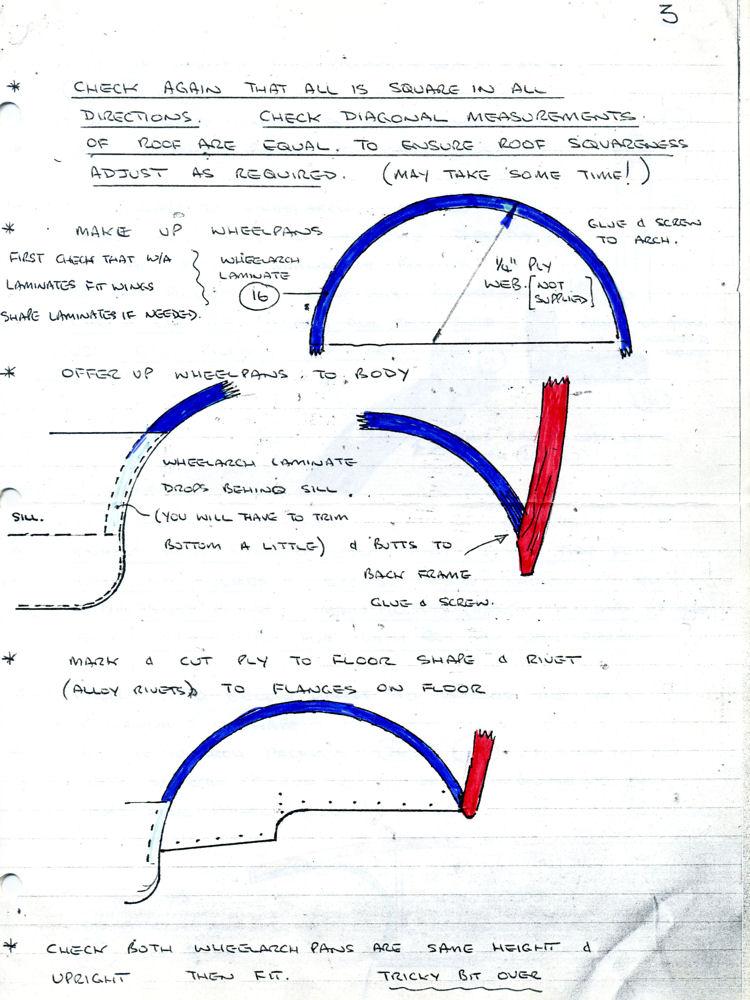 3
* CHECK AGAIN THAT ALL IS SQUARE IN ALL
DIRECTIONS. CHECK DIAGONAL MEASUREMENTS.
OF ROOF ARE EQUAL. TO ENSURE ROOF SQUARENESS
ADJUST AS REQUIRED. (MAY TAKE SOME TIME!)
* MAKE UP WHEELPANS
FIRST CHECK THAT W/A
LAMINATES FIT WINGS
SHAPE LAMINATES IF NEEDED.
WHEELARCH
LAMINATE
16
GLUE & SCREW
TO ARCH.
1/4" PLY
WEB. [NOT
SUPPLIED]
* OFFER UP WHEELPANS. TO BODY
WHEELARCH LAMINATE
DROPS BEHIND SILL.
SILL.
(YOU WILL HAVE TO TRIM
BOTTOM A LITTLE) & BUTTS TO
BACK FRAME
GLUE & SCREW.
* MARK & CUT PLY TO FLOOR SHAPE & RIVET
(ALLOY RIVETS) TO FLANGES ON FLOOR
* CHECK BOTH WHEELARCH PANS ARE SAME HEIGHT &
UPRIGHT THEN FIT. TRICKY BIT OVER